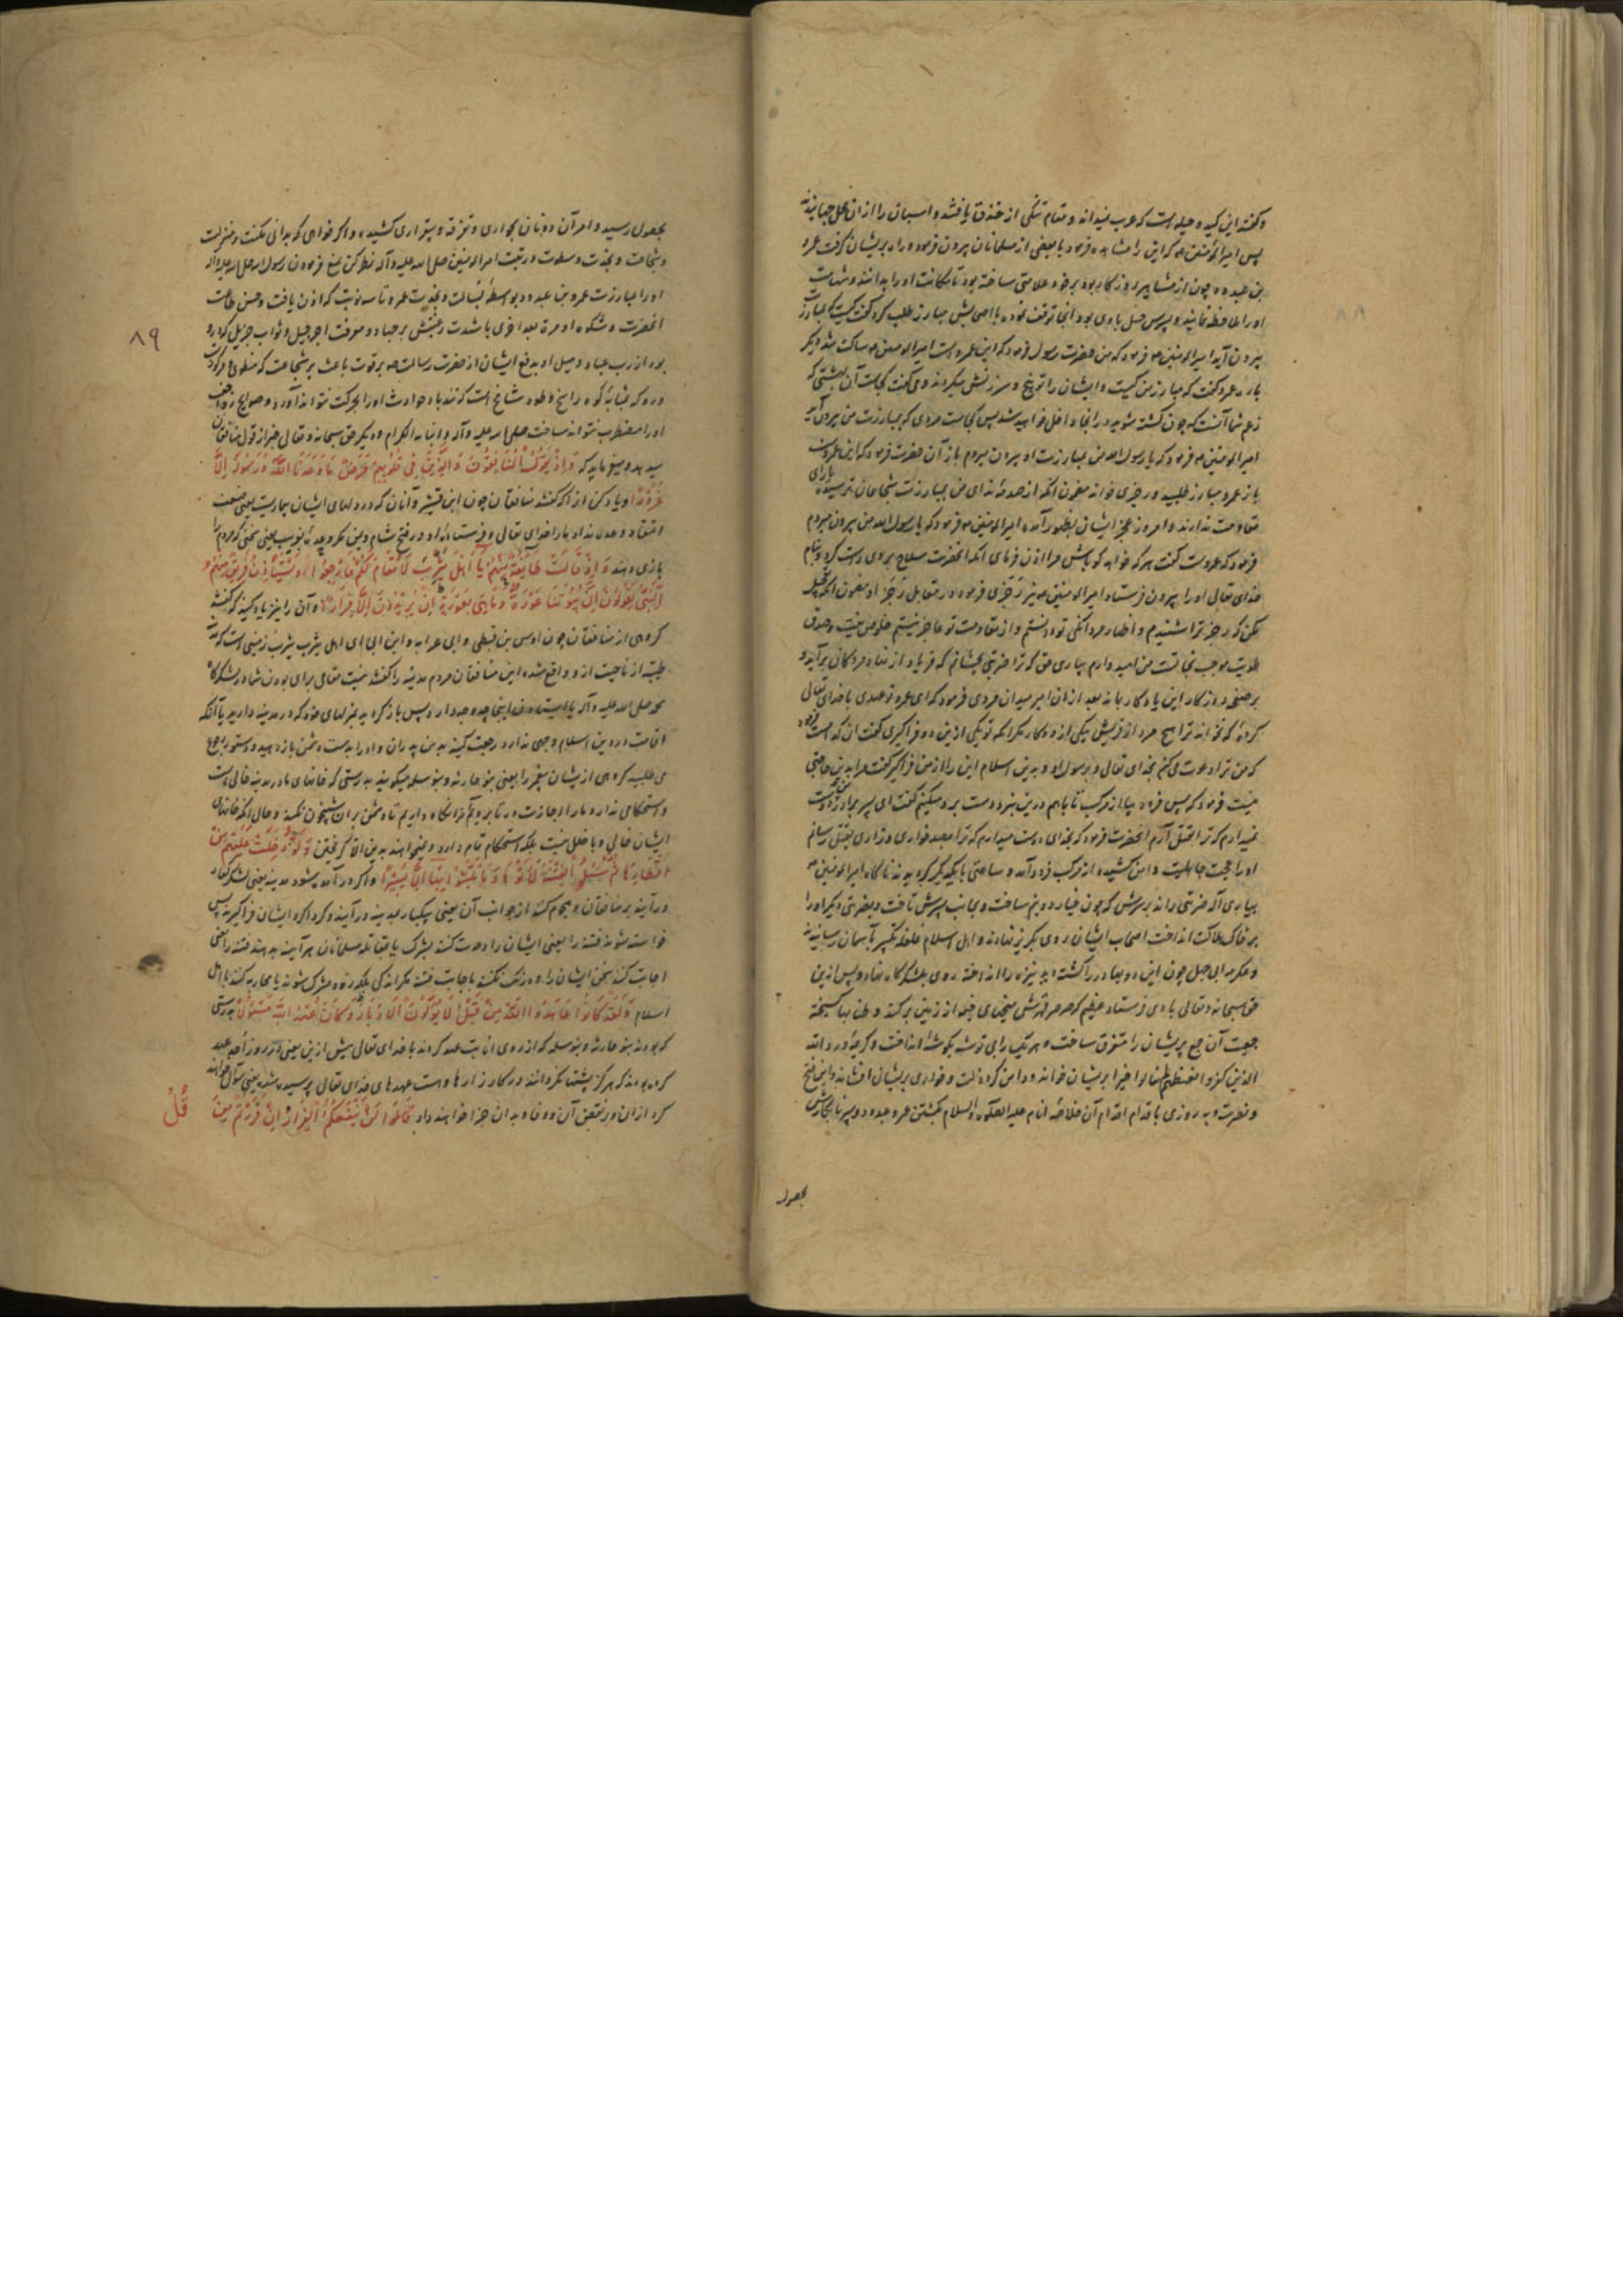 و گفتند این کیده و حیله است که عرب نمیدانند و مقام تنگی از خندق یافتند و اسبان را از ان محل جهانیدند
پس امیرالمؤمنین که این را مشاهده فرمود با بعضی از مسلمانان بیرون فرمود و راه بریشان گرفت عمرو
بن عبدود چون از مشاهیر روزگار بود بر خود علامتی ساخته بود تا مکانت او را بدانند و شهامت
او را ملاحظه نمایند و پسرش حسل با وی بود انجا توقف نموده با اصحابش مبارز طلب کرد گفت کیست که بمبارزت
بیرون آید امیرالمومنین فرمود که من حضرت رسول فرمود که این عمروست امیرالمومنین ساکت شد دیگر
باره عمرو گفت که مبارز من کیست و ایشان را توبیخ و سرزنش میکرد و می گفت کجاست آن بهشتی که
زعم شما آنست که چون کشته شوید در انجا داخل خواهید شد پس کجاست مردی که بمبارزت من بیرون آید
امیرالمومنین فرمود که یا رسول الله من بمبارزت او بیرون میروم باز آن حضرت فرمود که این عمروست
باز عمرو مبارز طلبید و رجزی خواند مضمون انکه از صدمه ندای من بمبارزت شجاعان ترسیده یارای
مقاومت ندارند و امروز عجز ایشان بظهور آمده امیرالمومنین فرمود که یا رسول الله من بیرون میروم
فرمود که عمروست گفت هر که خواهد گو باش مرا اذن فرمای انکه انحضرت سلاح بروی راست کرد و بنام
خدای تعالی او را بیرون فرستاد امیرالمومنین نیز رجزی فرمود در مقابل رجز او مضمون انکه تعجیل
مکن که رجز ترا شنیدم و اظهار مردانگی تو دانستم و از مقاومت تو عاجز نیستم خلوص نیت و صدق
طویت موجب نجات من امید دارم بیاری حق که ترا ضربتی بچشانم که فریاد از نهاد مردگان برآید و
بر صفحه روزگار این یادگار بماند بعد از ان امیر میدان مردی فرمود که ای عمرو تو عهدی با خدای تعالی
کرده که نخواند ترا هیچ مرد از قریش بیکی از دو کار مگر انکه تو یکی ازین دو فراگیری گفت ان کدامست فرمود
که من ترا دعوت می کنم بخدای تعالی و برسول او و بدین اسلام این را از من فراگیر گفت مرا بدین حاجتی
نیست فرمود که پس فرود بیا از مرکب تا باهم درین نبرد دست برد میکنیم گفت ای پسر برادر من دوست
نمیدارم که ترا بقتل آرم انحضرت فرمود که بخدای دوست میدارم که ترا بصد خواری و زاری بقتل رسانم
او را حمیت جاهلیت دامن کشیده از مرکب فرود آمد و ساعتی با یکدیگر گردیدند ناگاه امیرالمومنین
بیاری آله ضربتی راند بر سرش که چون خیار دو نیم ساخت و بجانب پسرش تاخت و بضربتی دیگر او را
بر خاک هلاکت انداخت اصحاب ایشان روی بگریز نهادند و اهل اسلام غلغله تکبیر بآسمان رسانیدند
و عکرمه ابی جهل چون این دو بهادر را کشته دید نیزه را انداخته روی بلشکرگاه نهاد و پس ازین
حق سبحانه و تعالی بادی فرستاد عظیم که صرصر قهرش میخهای خیمها از زمین برکند و طنابها گسیخته
جمعیت آن جمع پریشان را متفرق ساخت و هر یک را بی توشه بگوشه انداخت و کریمه ورد الله
الذین کفروا بغیظهم لم ینالوا خیرا بریشان خواند و دامن گرد ذلت و خواری بریشان افشاند و این فتح
و نصرت و بهروزی باقدام اقدام آن خلاصه انام علیه الصلوة والسلام بکشتن عمرو عبدود و پسر نابکارش
بحصول
بحصول رسید و امر آن دونان بخواری و تفرقه و بیقراری کشید و اگر خواهی که بدانی مکنت و منزلت
و شجاعت و نجدت و سطوت و رتبت امیرالمومنین صلی الله علیه و آله نظر کن بمنع فرمودن رسول الله صلی الله علیه و آله
او را بمبارزت عمرو بن عبدود بواسطه بسالت و نجدت عمرو تا سه نوبت که اذن یافت و حسن طاعت
انحضرت و شکوه او مرة بعد اخری با شدت رغبتش بر جهاد و معرفت اجر جمیل و ثواب جزیل که درو
بود از رب عباد و میل او بدفع ایشان از حضرت رسالت بر قوت باعث بر شجاعت که منطوی
درو که بمثابه کوه راسخ و طود شامخ است که تندباد حوادث او را بحرکت نتواند آورد و صواعق
او را مضطرب نتواند ساخت صلی الله علیه و آله و ابنائه الکرام و دیگر حق سبحانه و تعالی خبر از قول منافقان
میدهد و میفرماید که وَإِذْ يَقُولُ الْمُنَافِقُونَ وَالَّذِينَ فِي قُلُوبِهِمْ مَرَضٌ مَا وَعَدَنَا اللَّهُ وَرَسُولُهُ إِلَّا
غُرُورًا و یاد کن انرا که گفتند منافقان چون ابن قشیر و آنان که در دلهای ایشان بیماریست یعنی ضعف
اعتقاد وعده نداد ما را خدای تعالی و فرستاده او در فتح شام و یمن مگر وعده بفریب یعنی سخنی که مردم را
بازی دهند وَإِذْ قَالَتْ طَائِفَةٌ مِنْهُمْ يَا أَهْلَ يَثْرِبَ لَا مُقَامَ لَكُمْ فَارْجِعُوا وَيَسْتَأْذِنُ فَرِيقٌ مِنْهُمُ
النَّبِيَّ يَقُولُونَ إِنَّ بُيُوتَنَا عَوْرَةٌ وَمَا هِيَ بِعَوْرَةٍ إِنْ يُرِيدُونَ إِلَّا فِرَارًا و آن را نیز یاد کنید که گفتند
گروهی از منافقان چون اوس بن قبطی و ابی عرابه و ابن ابی ای اهل یثرب یثرب زمینی است که مدینه
طیبه از ناحیت ازو واقع شده این منافقان مردم مدینه را گفتند نیست مقامی برای بودن شما در لشکرگاه
محمد صلی الله علیه و آله یا ایستادن اینجا چه وجه دارد پس بازگردید بمنزلهای خود که در مدینه دارید یا آنکه
اقامت در دین اسلام وجهی ندارد رجعت کنید بدین پدران و او را بدست دشمن باز دهید و دستور مراجعه
می طلبید گروهی از یشان پیغمبر را یعنی بنو حارثه و بنو سلمه میگویند بدرستی که خانهای ما در مدینه خالی است
و استحکامی ندارد ما را اجازت ده تا برویم و نگاه داریم تا دشمن بر ان شبیخون نکند و حال انکه خانهای
ایشان خالی و با خلل نیست بلکه استحکام تمام دارد و نمیخواهند بدین الا گریختن وَلَوْ دُخِلَتْ عَلَيْهِمْ مِنْ
أَقْطَارِهَا ثُمَّ سُئِلُوا الْفِتْنَةَ لَآتَوْهَا وَمَا تَلَبَّثُوا بِهَا إِلَّا يَسِيرًا و اگر درآمده شود مدینه یعنی لشکر کفار
درآیند بر منافقان و هجوم کنند از جوانب آن یعنی بیکبار بمدینه درآیند و گرداگرد ایشان فراگیرند پس
خواسته شوند فتنه را یعنی ایشان را دعوت کنند بشرک یا بمقاتله مسلمانان هر آینه بدهند فتنه را یعنی
اجابت کنند سخن ایشان را و درنگ نکنند باجابت فتنه مگر اندکی بلکه زود مشرک شوند یا محاربه کنند با اهل
اسلام وَلَقَدْ كَانُوا عَاهَدُوا اللَّهَ مِنْ قَبْلُ لَا يُوَلُّونَ الْأَدْبَارَ وَكَانَ عَهْدُ اللَّهِ مَسْئُولًا بدرستی
که بودند بنو حارثه و بنو سلمه که از روی انابت عهد کردند با خدای تعالی پیش ازین یعنی در روز احد عهد
کرده بودند که هرگز پشتها نگردانند در کارزارها و هست عهدهای خدای تعالی پرسیده شده یعنی سؤال خواهند
کرد از ان و بر نقض آن و وفاء بدان جزا خواهند داد قُلْ لَنْ يَنْفَعَكُمُ الْفِرَارُ إِنْ فَرَرْتُمْ مِنَ
قُلْ
٨٩